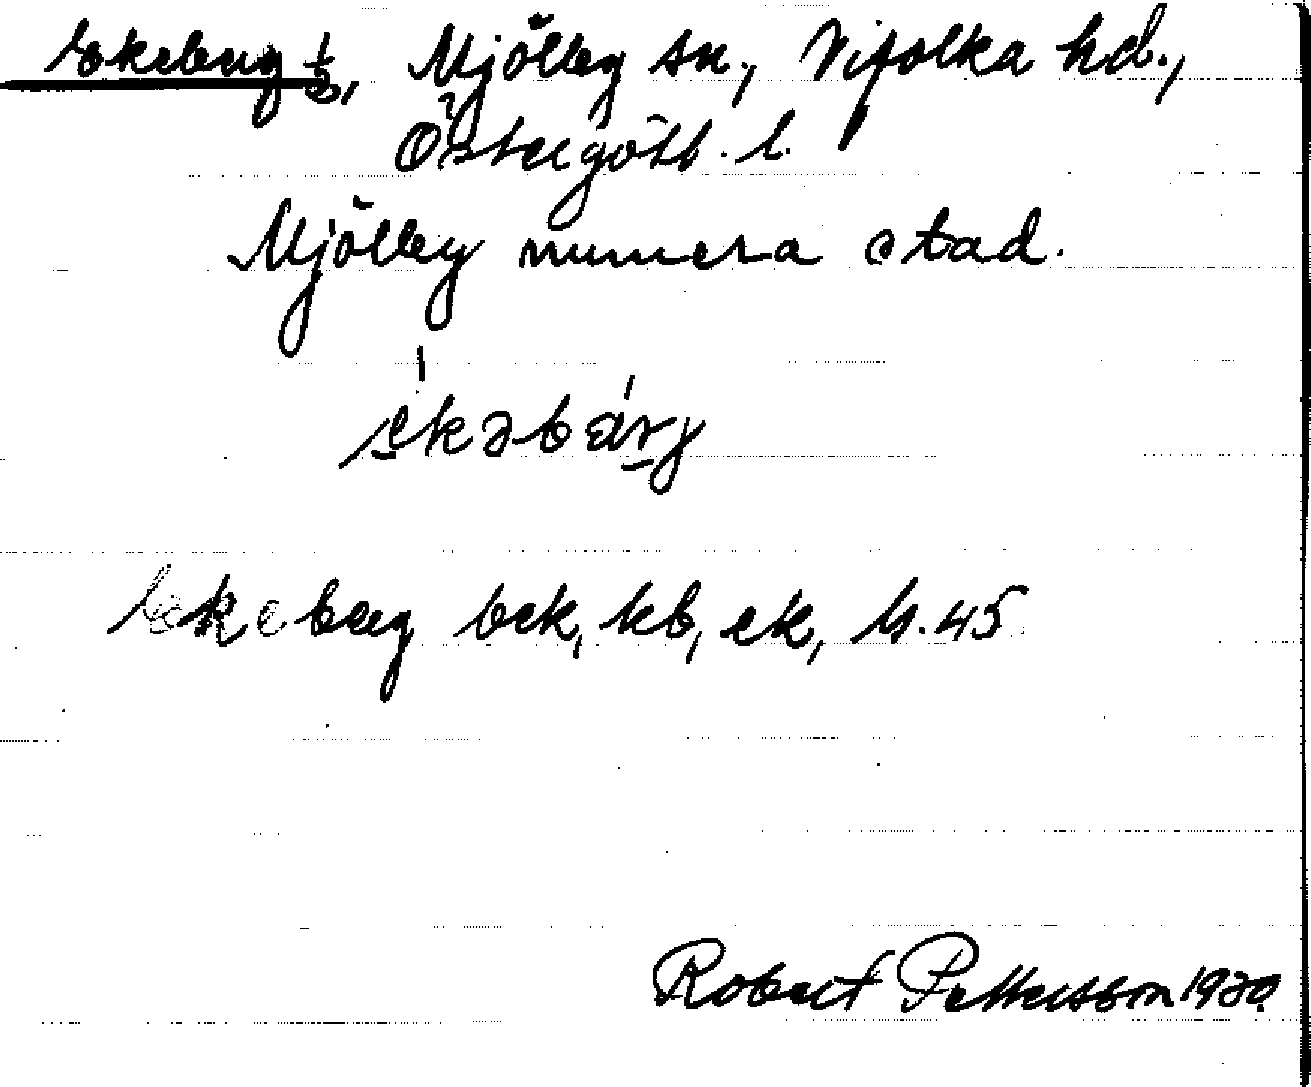 Ekeberg 1/2, Mjölby sn., Vifolka hd.,
Östergötl. l.
Mjölby numera stad.
ékəbárj
Ekeberg bek, kb, ek, M.45
Robert Pettersson 1930.